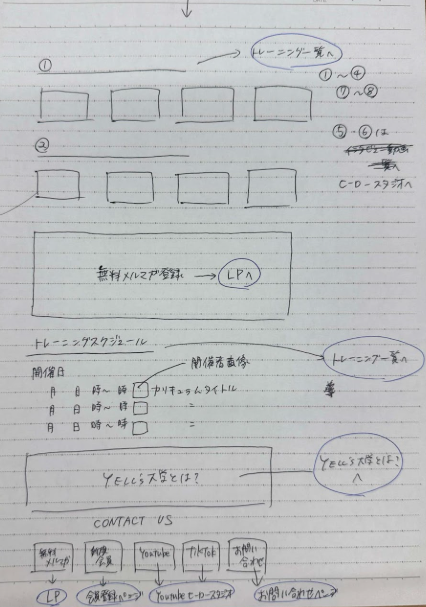 ① トレーニング一覧へ
①～④
⑦～⑧
②
⑤-⑥は
一覧へ
ヒーロースタジオへ
無料メルマガ登録 → LPへ
トレーニングスケジュール
トレーニング一覧へ
開催日
開催者画像
月 日 時～時 カリキュラムタイトル
月 日 時～時 〃
月 日 時～時 〃
YELL's大学とは?
YELL's大学とは?へ
CONTACT US
無料メルマガ
会員
Youtube
TikTok
お問い合わせ
LP
会員登録ページ
Youtubeヒーロースタジオ
お問い合わせページ